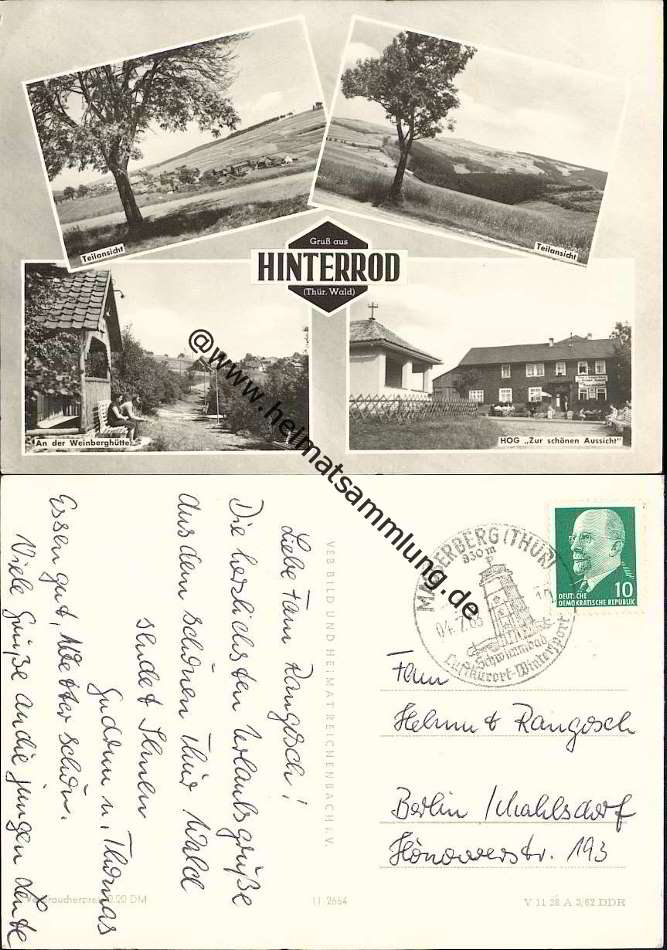 Teilansicht
Teilansicht
Gruß aus
HINTERROD
(Thür. Wald)
An der Weinberghütte
HOG „Zur schönen Aussicht"
@www.heimatsammlung.de
Liebe Fam Rangosch!
Die herzlichsten Urlaubsgrüße
aus dem schönen Thür Wald
sendet Ihnen
Gudrun u. Thomas
Essen gut, Wetter schön.
Viele Grüße an die jungen Leute
VEB BILD UND HEIMAT REICHENBACH i. V.
MASSERBERG (THÜR)
830 m
04.7.63
Schwimmbad
Luftkurort-Wintersport
10
DEUTSCHE
DEMOKRATISCHE REPUBLIK
Fam
Helmut Rangosch
Berlin / Mahlsdorf
Hönowerstr. 193
Verbraucherpreis 0.20 DM
11 2664
V 11 28 A 3/62 DDR